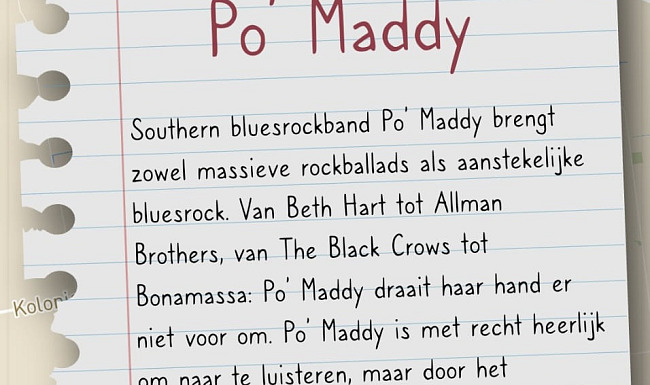 Po' Maddy
Southern bluesrockband Po' Maddy brengt
zowel massieve rockballads als aanstekelijke
bluesrock. Van Beth Hart tot Allman
Brothers, van The Black Crows tot
Bonamassa: Po' Maddy draait haar hand er
Kolon
niet voor om. Po' Maddy is met recht heerlijk
om naar te luisteren, maar door het